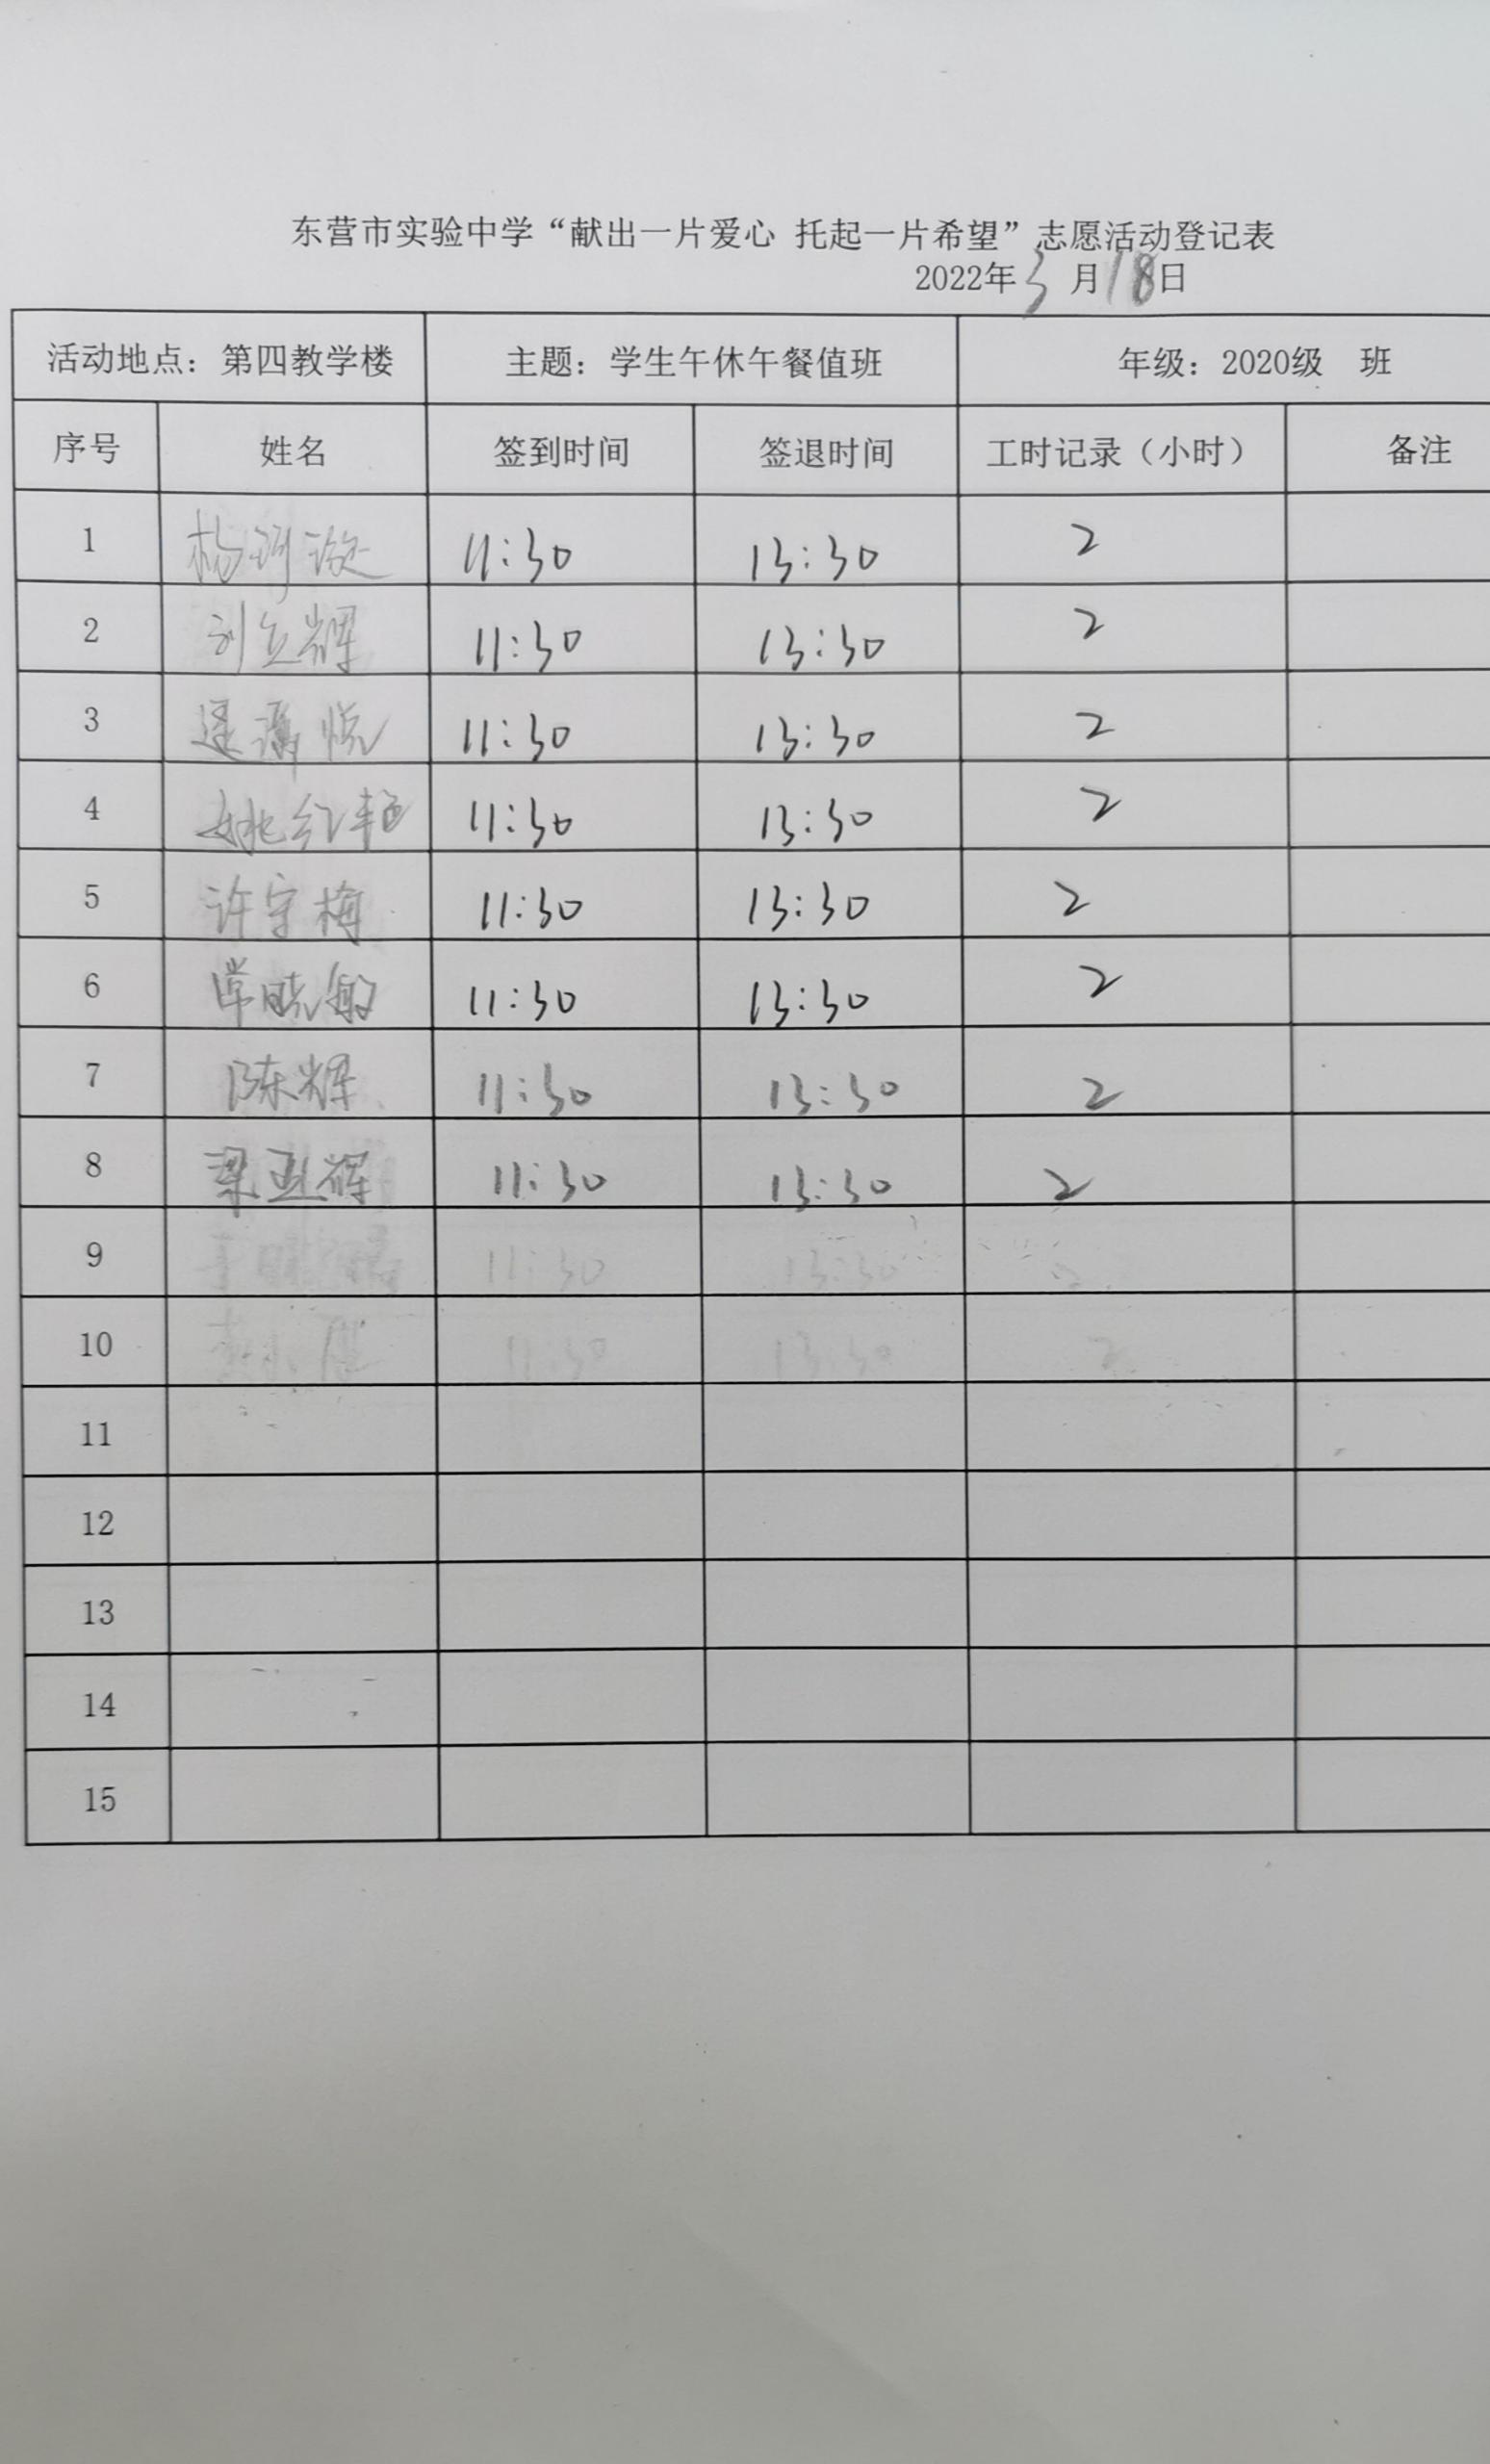 东营市实验中学“献出一片爱心 托起一片希望”志愿活动登记表
2022年3月18日
活动地点：第四教学楼 主题：学生午休午餐值班 年级：2020级 班
序号 姓名 签到时间 签退时间 工时记录（小时） 备注
1 杨 11:30 13:30 2
2 刘立辉 11:30 13:30 2
3 悦 11:30 13:30 2
4 姚红艳 11:30 13:30 2
5 许宁梅 11:30 13:30 2
6 常晓敏 11:30 13:30 2
7 陈辉 11:30 13:30 2
8 梁亚辉 11:30 13:30 2
9 11:30 13:30 2
10 11:30 13:30 2
11
12
13
14
15